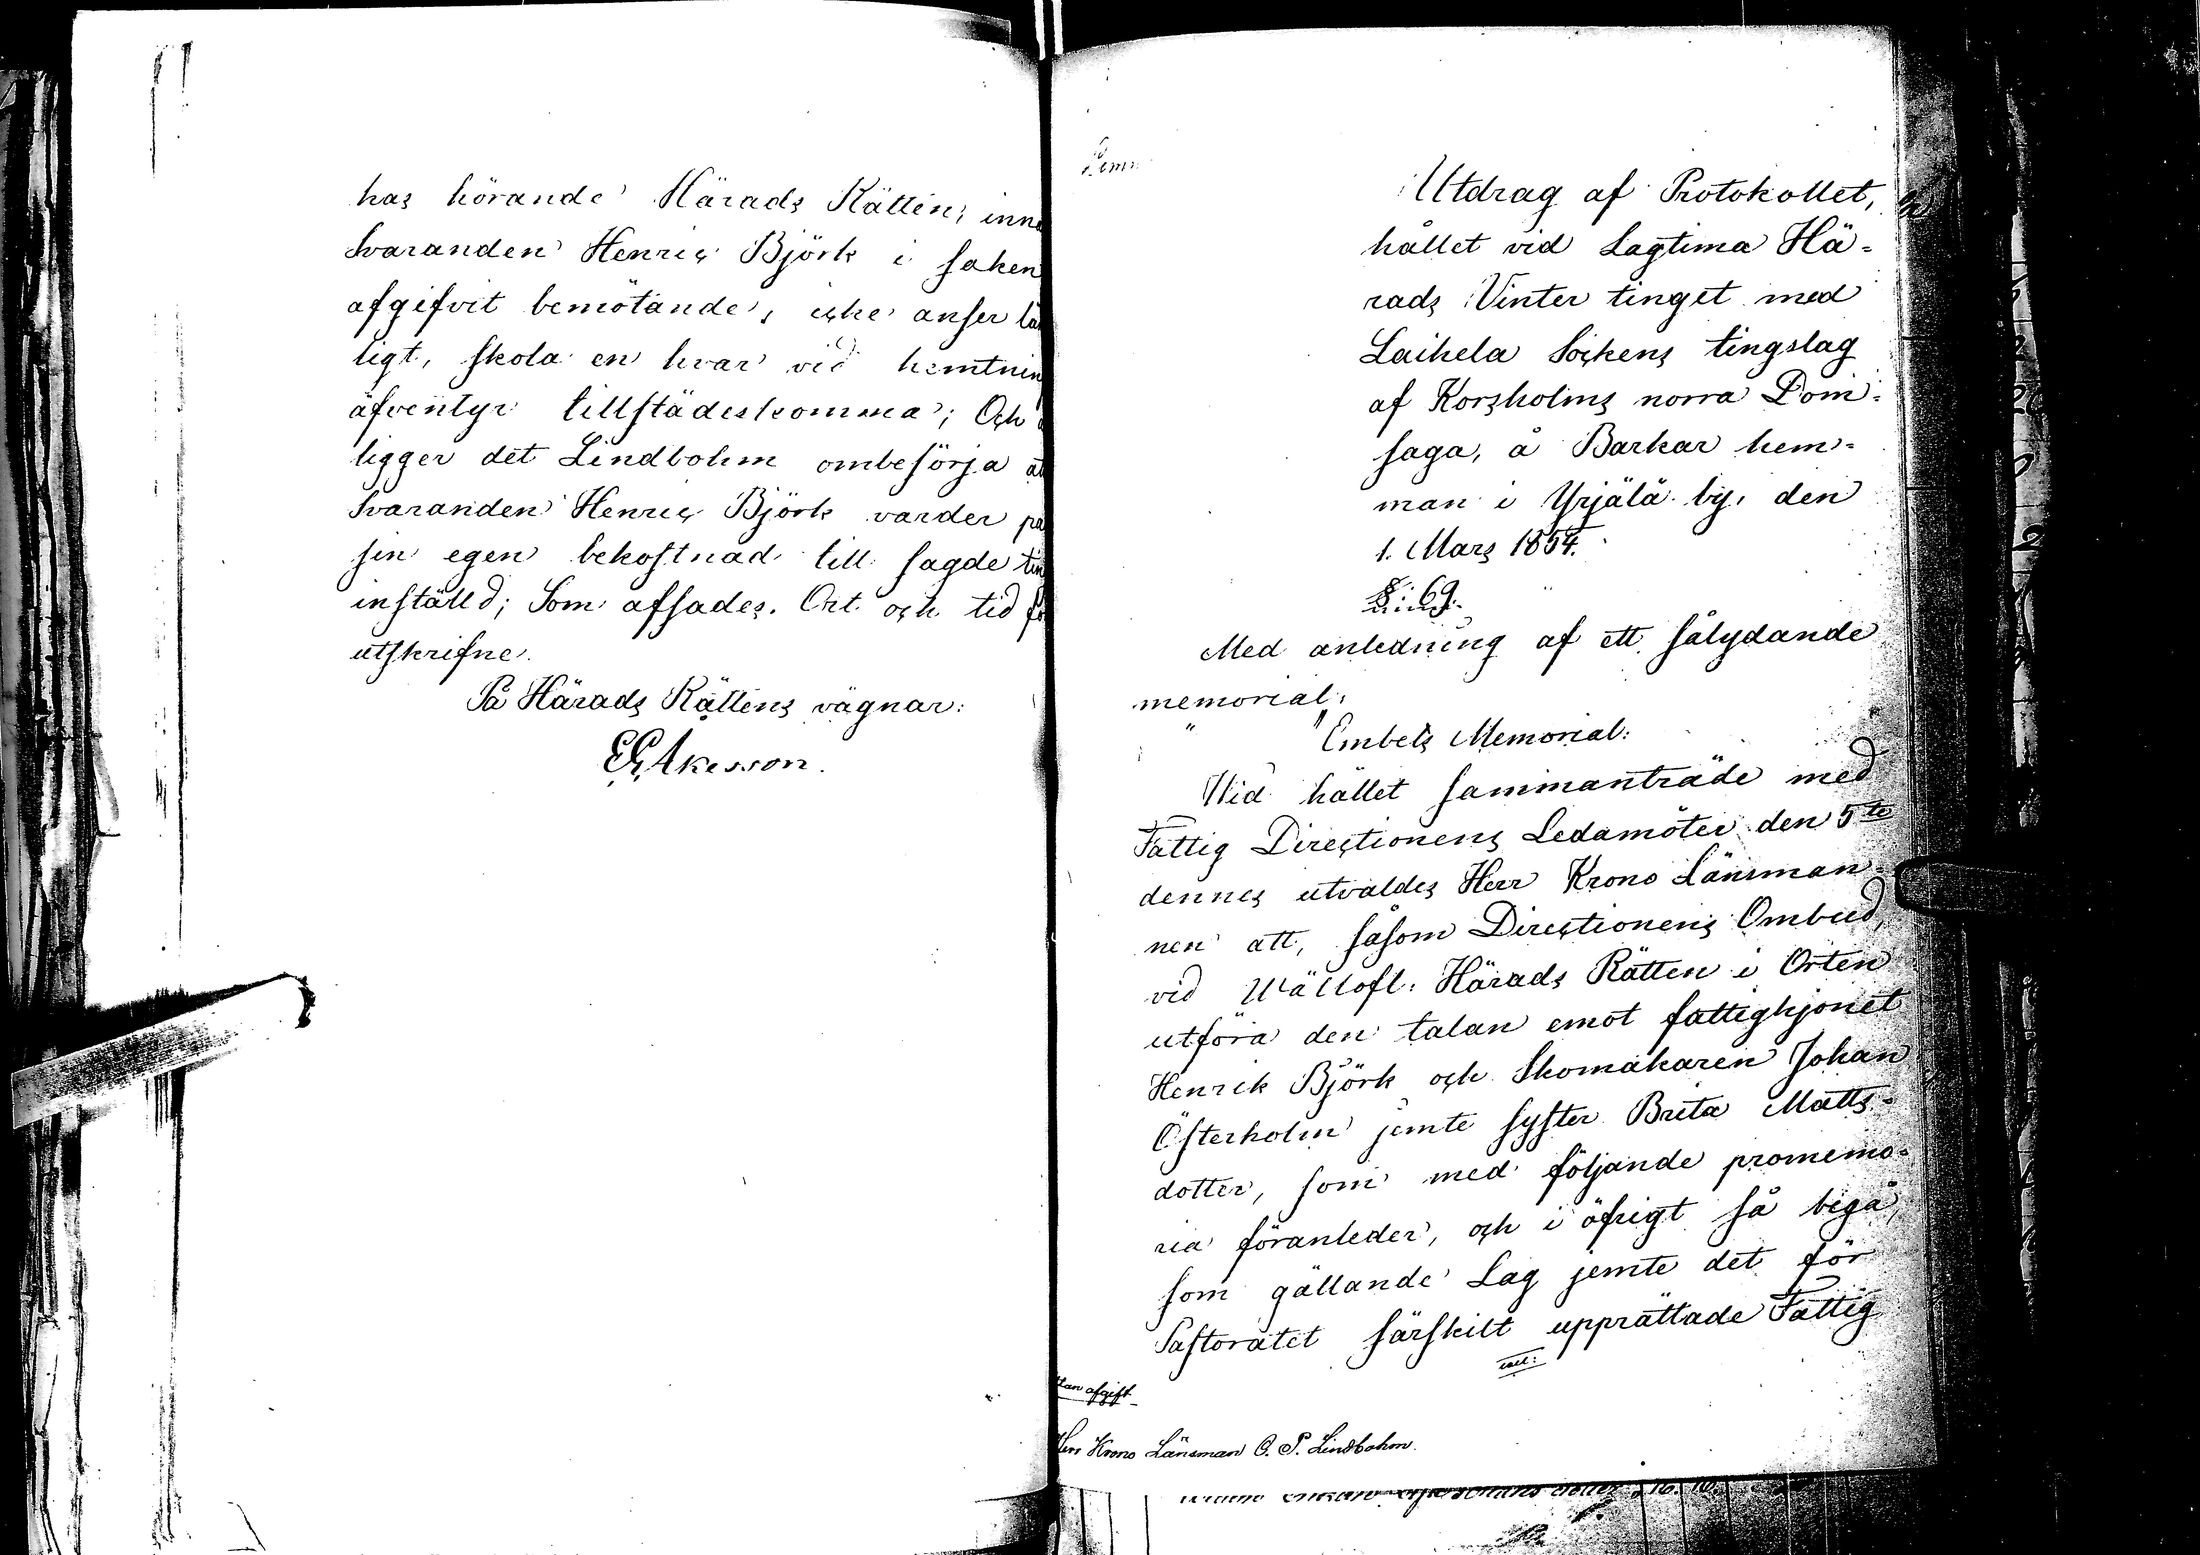 has hörande Härads Rätten, inn
Svaranden Henric Björk i saken
afgifvit bemötande, icke anser
ligt, skola en hvar vid hemtnin
äfventyr tillstädeskomma; Och
ligger det Lindbohm ombesörja at
Svaranden Henric Björk varder på
sin egen bekostnad till sagde tin
inställd; Som afsades. Ort och tid
utskrifne.
På Härads Rättens vägnar:
EG Åkesson.
Utdrag af Protokollet,
hållet vid Lagtima Hä-
rads Vinter tinget med
Laihela Sockens tingslag
af Korsholms norra Dom-
saga, å Barkar hem-
man i Yrjälä by, den
1. Mars 1854.
§: 69.
Med anledning af ett sålydande
memorial:
"Embets Memorial:
Vid hållet sammanträde med
Fattig Directionens Ledamöter den 5te
dennes utvaldes Herr Krono Länsman-
nen att, såsom Directionens Ombud,
vid Wällofl. Härads Rätten i Orten
utföra den talan emot fattighjonet
Henrik Björk och Skomakaren Johan
Österholm jemte syster Brita Matts-
dotter, som med följande promemo-
ria föranleder, och i öfrigt så begå,
som gällande Lag jemte det för
Pastoratet särskilt upprättade Fattig
tan afgift
Herr Krono Länsman O. P. Lindbohm.